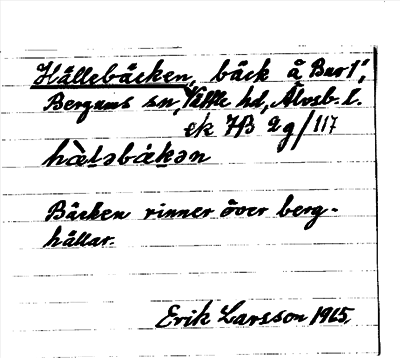 Hällebäcken, bäck å Bur 1⁴,
Bergums sn, Vättle hd, Älvsb. l.
ek 7B 2g/117
hæ̀ḷəbàkən
Bäcken rinner över berg-
hällar.
Erik Larsson 1965.